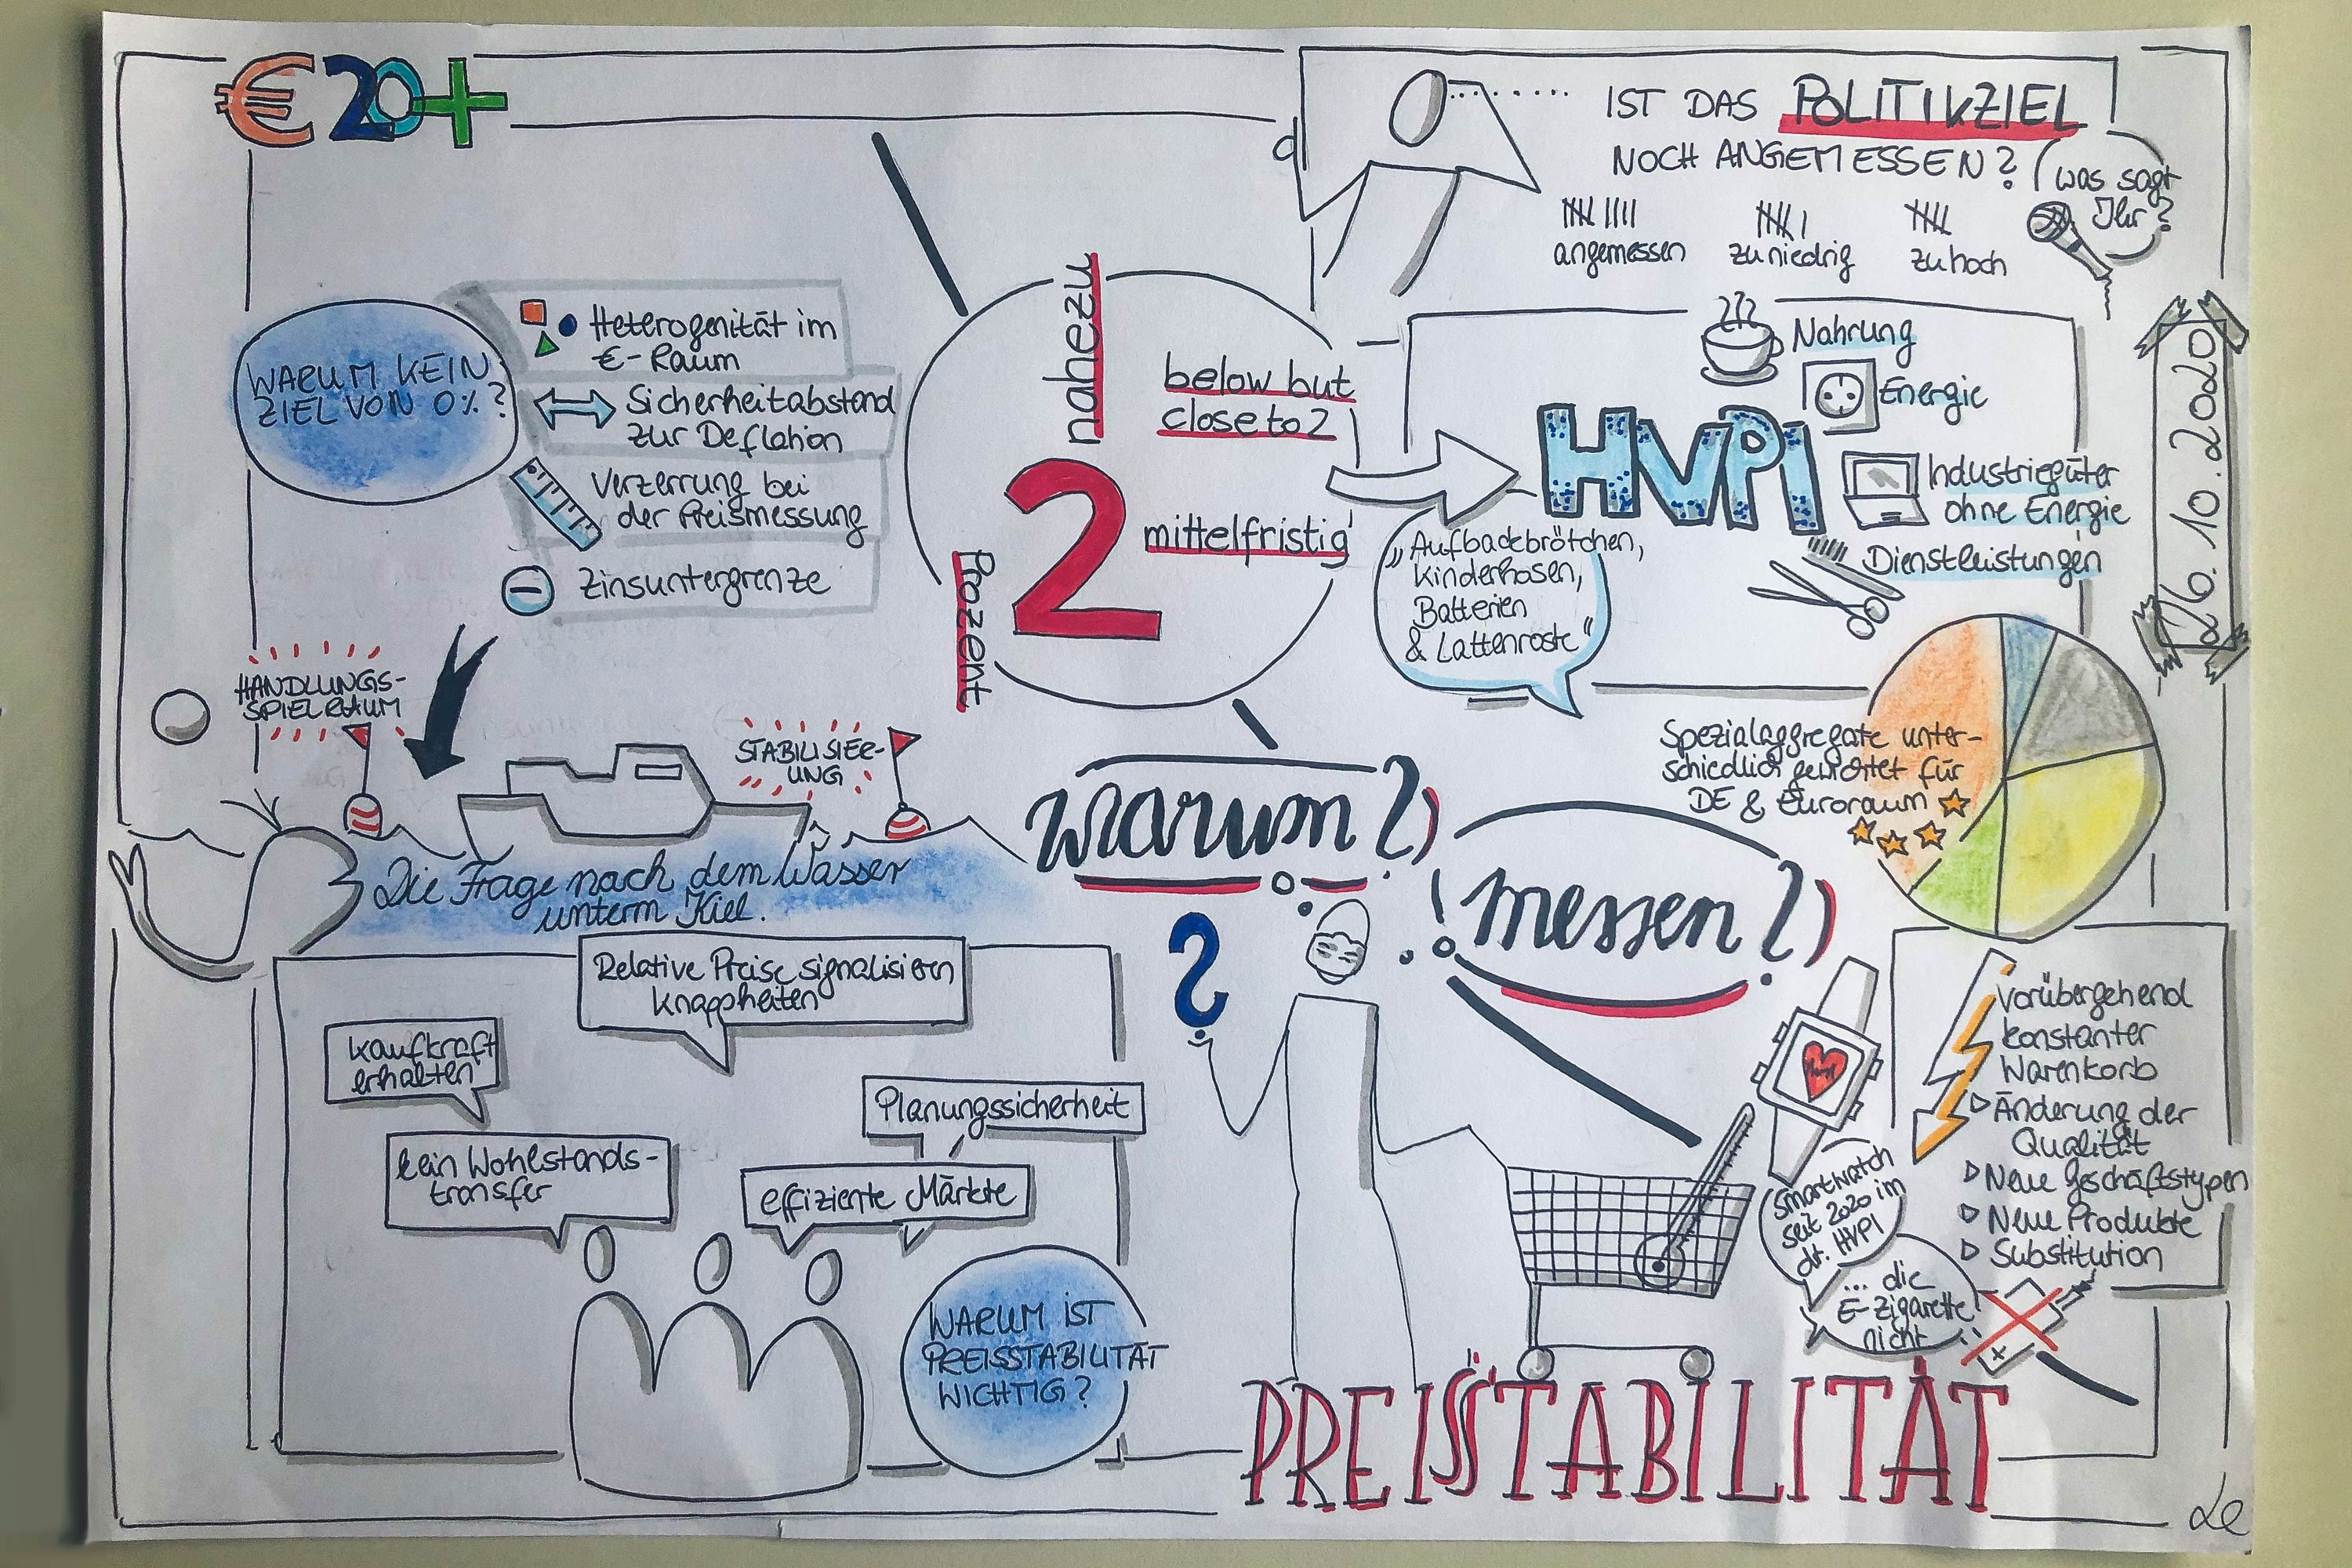 €20+
IST DAS POLITIKZIEL
NOCH ANGEMESSEN?
was sagt
Ihr?
angemessen
zu niedrig
zu hoch
26.10.2020
WARUM KEIN
ZIEL VON 0%?
Heterogenität im
€-Raum
Sicherheitabstand
zur Deflation
Verzerrung bei
der Preismessung
Zinsuntergrenze
nahezu
2
Prozent
below but
close to 2
mittelfristig
HVPI
Nahrung
Energie
Industriegüter
ohne Energie
Dienstleistungen
„Aufbackbrötchen,
Kinderhosen,
Batterien
& Lattenroste"
Spezialaggregate unter-
schiedlich gewichtet für
DE & Euroraum
HANDLUNGS-
SPIELRAUM
STABILISIER-
UNG
Die Frage nach dem Wasser
unterm Kiel.
Warum?
messen?
?
Relative Preise signalisieren
Knappheiten
Kaufkraft
erhalten
Planungssicherheit
kein Wohlstands-
transfer
effiziente Märkte
WARUM IST
PREISSTABILITÄT
WICHTIG?
Vorübergehend
konstanter
Warenkorb
Änderung der
Qualität
Neue Geschäftstypen
Neue Produkte
Substitution
Smartwatch
seit 2020 im
dt. HVPI
... die
E-Zigarette
nicht
PREISSTABILITÄT
Le